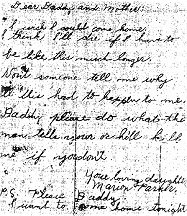 Dear Daddy and Mother:
I wish I could come home.
I think I'll die if I have to
be like this much longer.
Wont someone tell me why
all this had to happen to me.
Daddy please do what the
man tells you or he'll kill
me if you don't.
Your loving daughter
Marion Parker.
P.S. Please Daddy
I want to come home tonight.